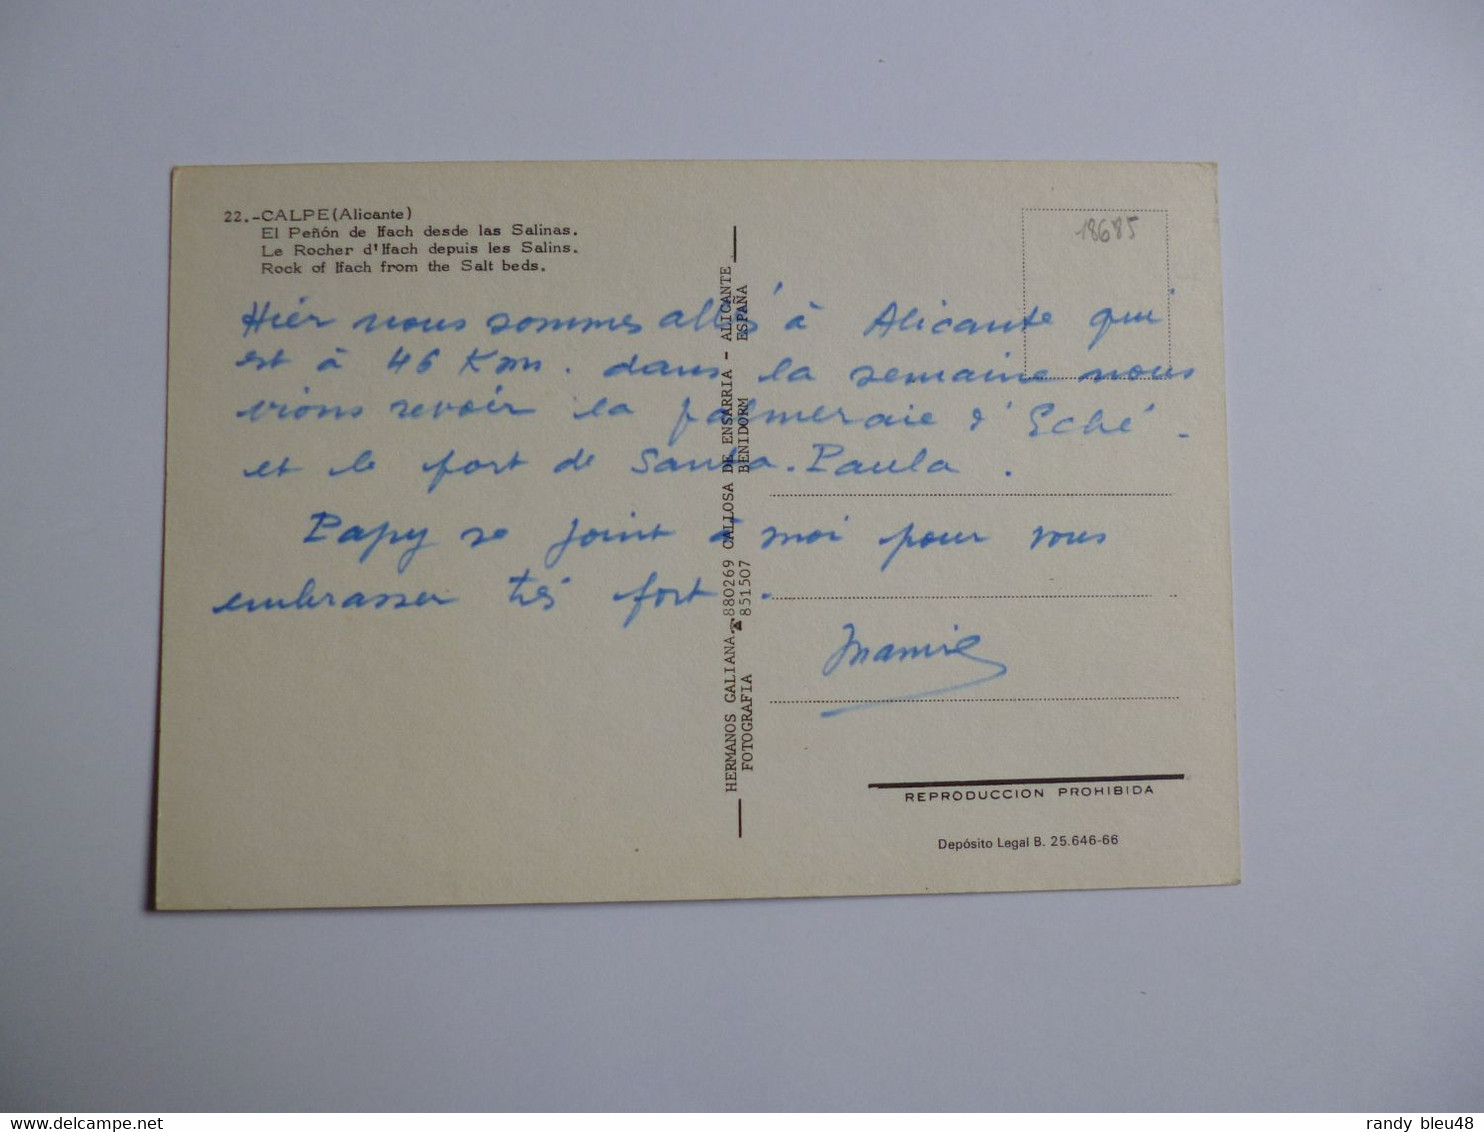 22.-CALPE (Alicante)
El Peñón de Ifach desde las Salinas.
Le Rocher d'Ifach depuis les Salins.
Rock of Ifach from the Salt beds.
18685
Hier nous sommes allés à Alicante qui
est à 46 Km. dans la semaine nous
irions revoir la palmeraie d'Eché -
et le fort de Santa-Paula.
Papy se joint à moi pour vous
embrasser très fort.
Mamie
HERMANOS GALIANA. ☎ 880269 CALLOSA DE ENSARRIA - ALICANTE
FOTOGRAFIA 851507 BENIDORM ESPAÑA
REPRODUCCION PROHIBIDA
Depósito Legal B. 25.646-66
delcampe.net
randy_bleu48